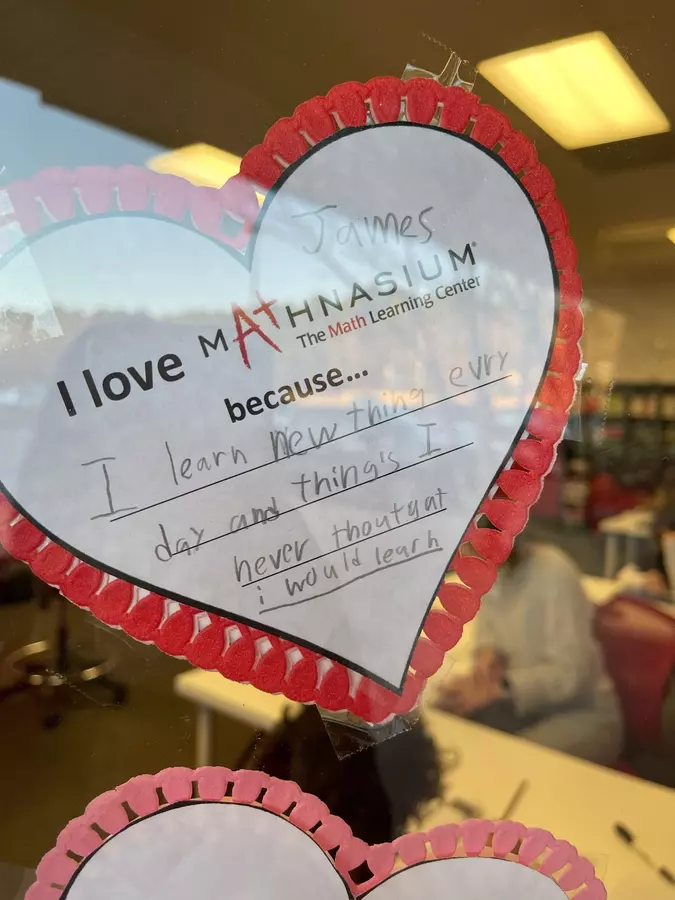 James
I love MATHNASIUM®
The Math Learning Center
because...
I learn new thing evry
day and thing's I
never thoutgat
i would learn